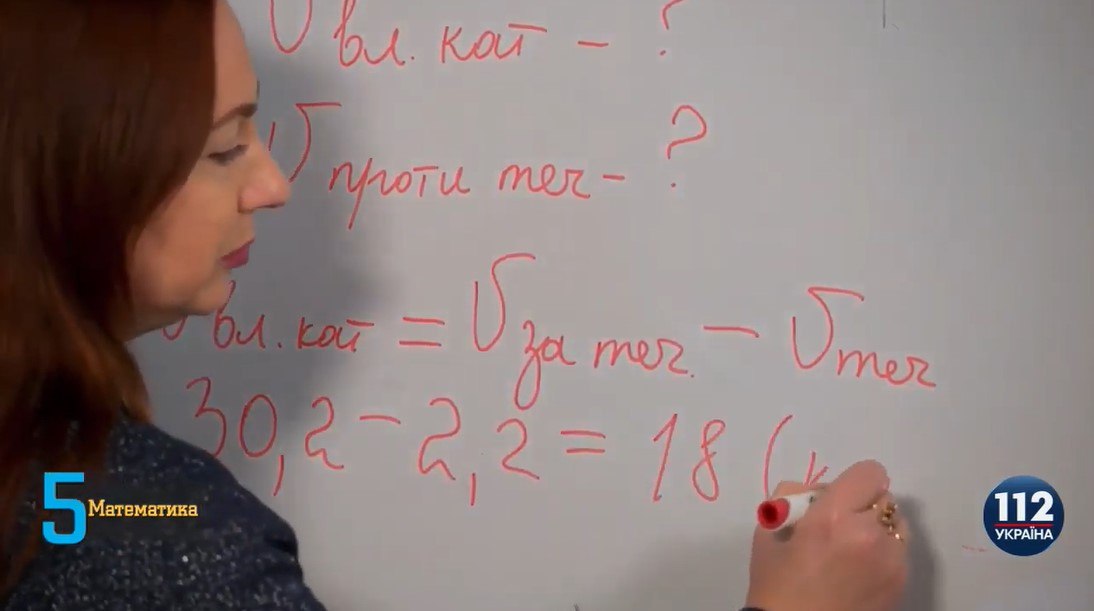 V вл. кат - ?
V проти теч - ?
V вл. кат = V за теч. - V теч
30,2 - 2,2 = 18 (к
5 Математика
112
УКРАЇНА